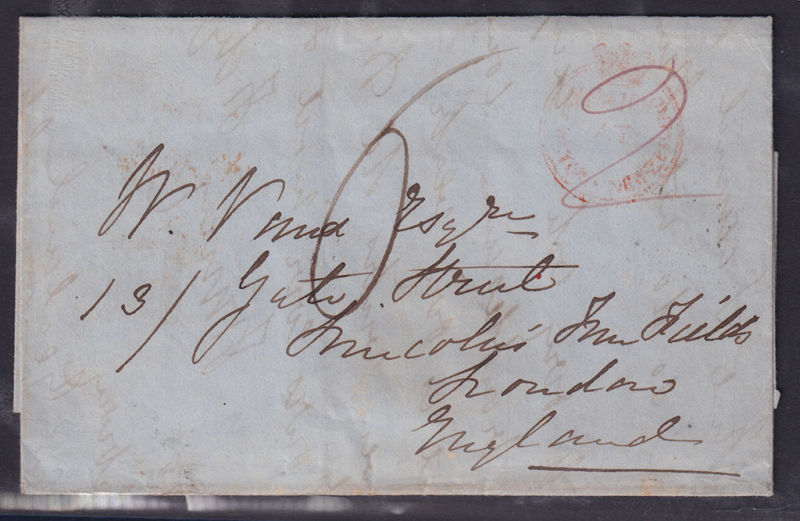 2
6
W. Vand Esqre
13/ Gate Street
Lincoln's Inn Fields
London
England